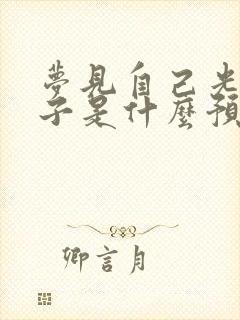 夢見自己光
子是什麼預
卿言月